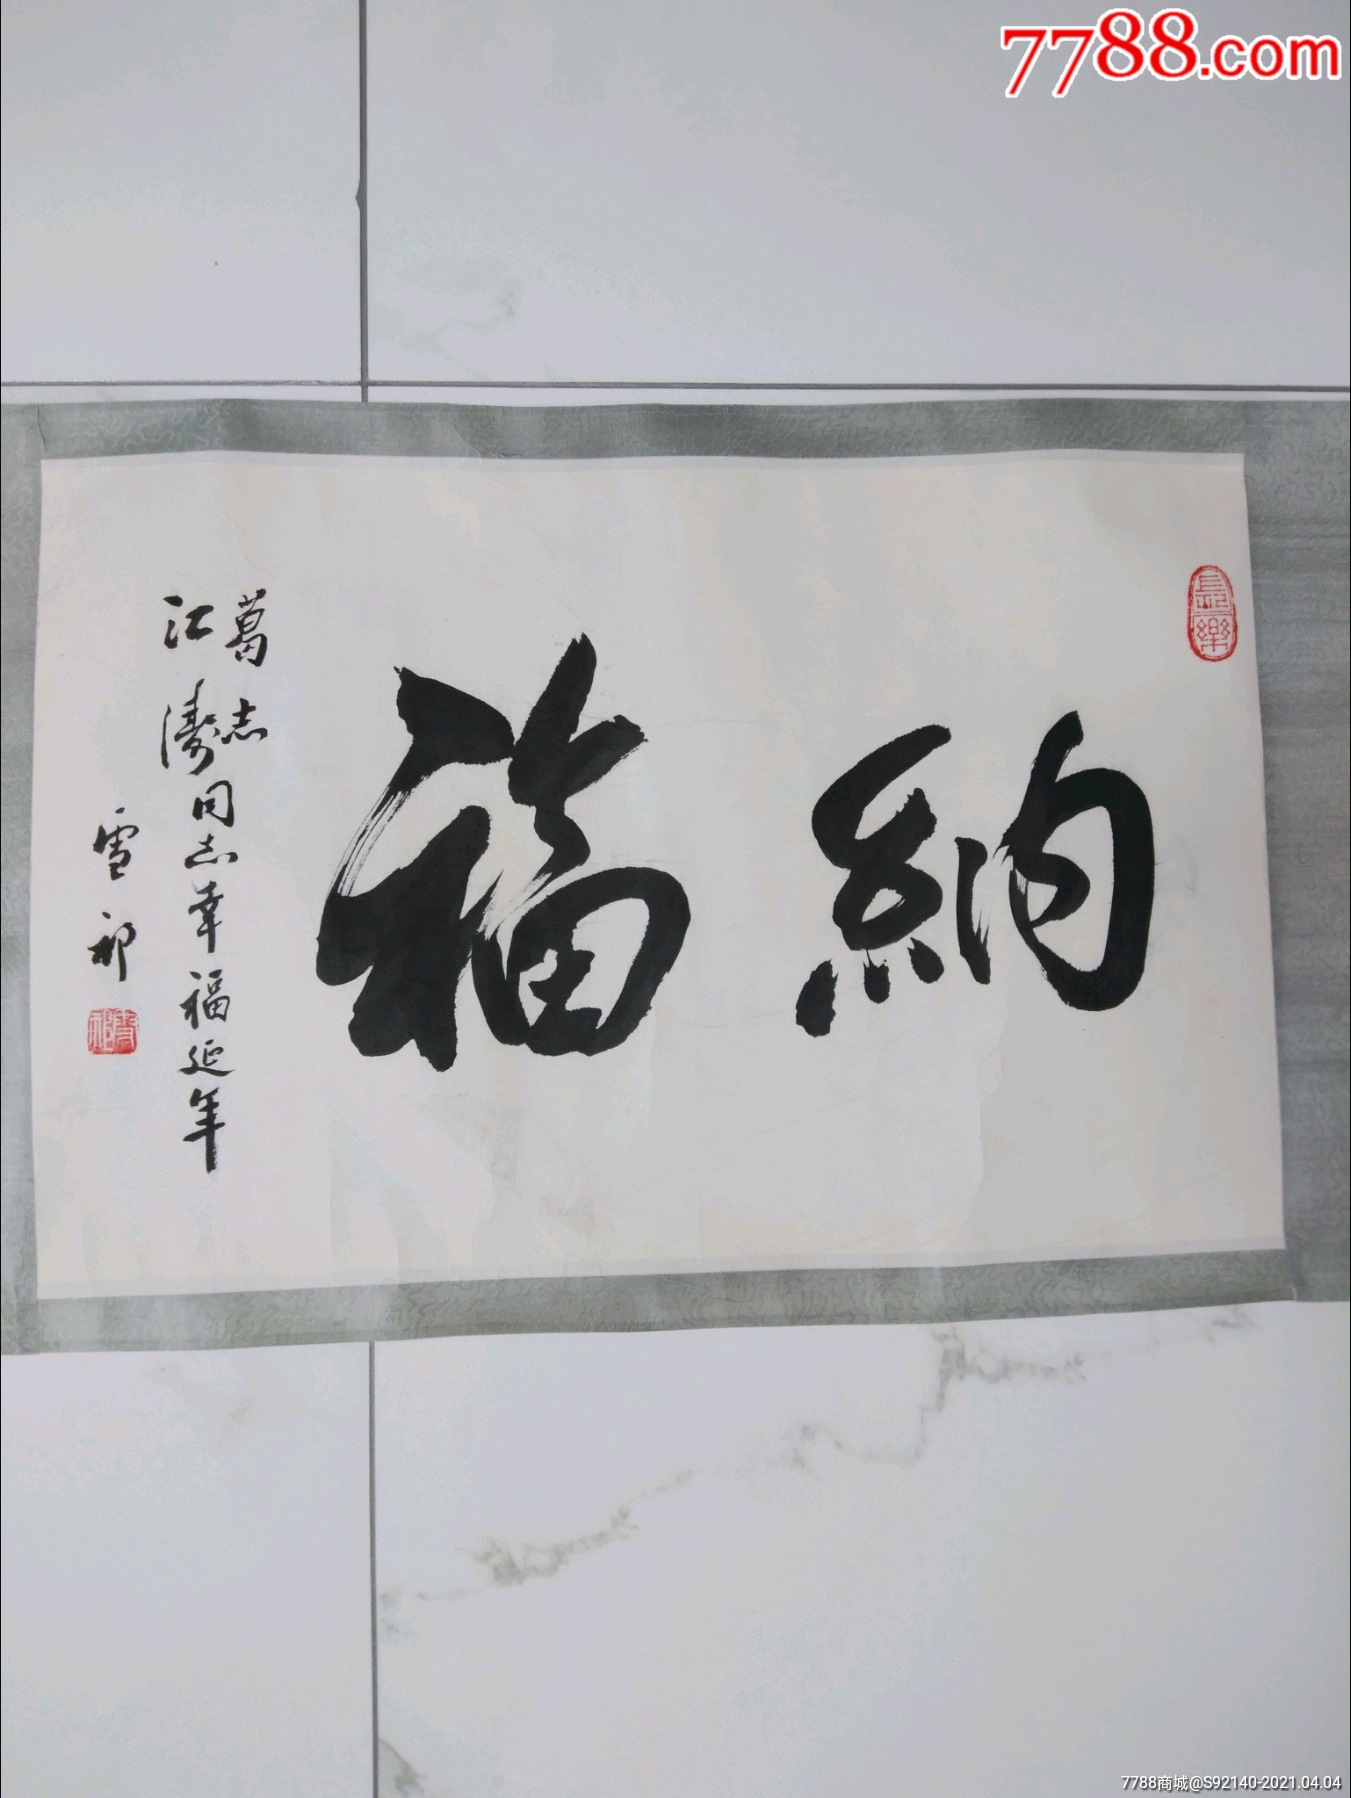 7788.com
納福
長樂
葛志
江濤同志幸福延年
雪祁
雪祁
7788商城@S92140-2021.04.04